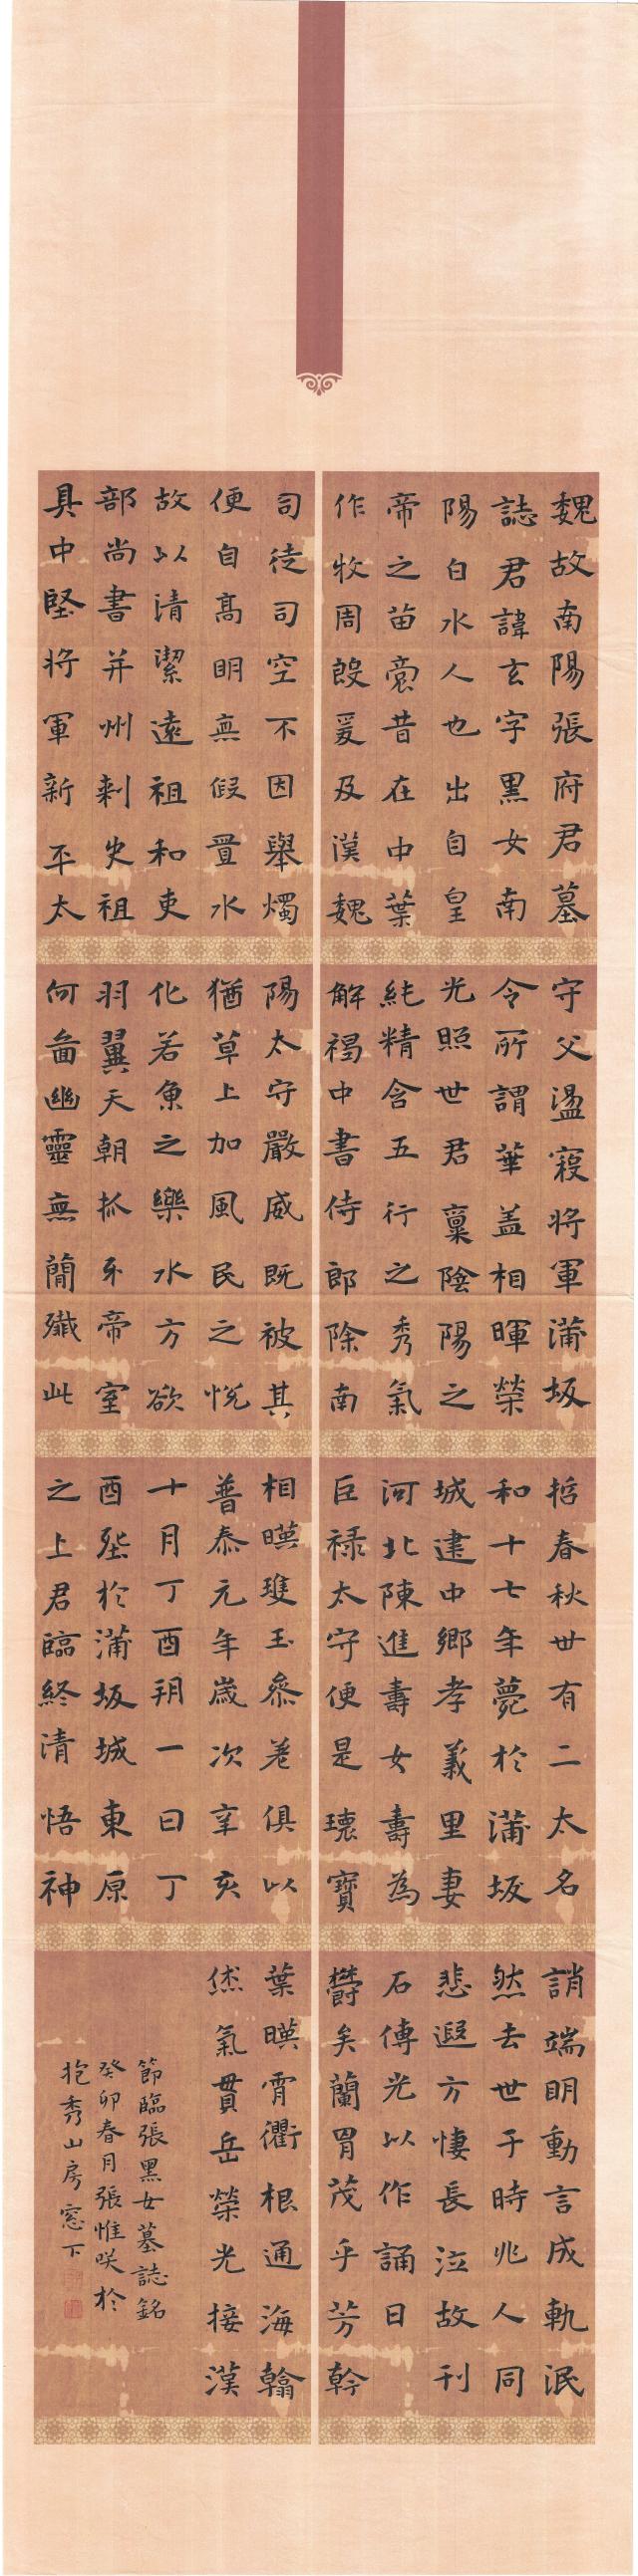 魏故南陽張府君墓
誌君諱玄字黑女南
陽白水人也出自皇
帝之苗裔昔在中葉
作牧周殷爰及漢魏
司徒司空不因舉燭
便自高明無假置水
故以清潔遠祖和吏
部尚書并州刺史祖
具中堅將軍新平太
守父盪寇將軍蒲坂
令所謂華蓋相暉榮
光照世君稟陰陽之
純精含五行之秀氣
解褐中書侍郎除南
陽太守嚴威既被其
猶草上加風民之悅
化若魚之樂水方欲
羽翼天朝抓牙帝室
何啚幽靈無簡殲此
悊春秋卅有二太名
和十七年薨於蒲坂
城建中鄉孝義里妻
河北陳進壽女壽為
巨祿太守便是瓌寶
相暎瓊玉參差俱以
普泰元年歲次辛亥
十月丁酉朔一日丁
酉塟於蒲坂城東原
之上君臨終清悟神
誚端明動言成軌泯
然去世于時兆人同
悲遐方悽長泣故刊
石傳光以作誦曰
鬱矣蘭冑茂乎芳幹
葉暎霄衢根通海翰
烋氣貫岳榮光接漢
節臨張黑女墓誌銘
癸卯春月張惟咲於
抱秀山房窓下